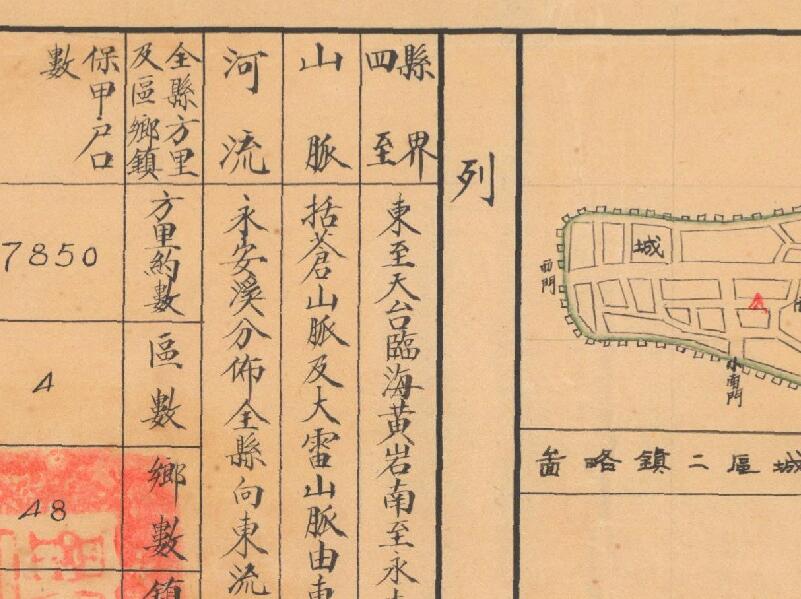 城
西門
小南門
城區二鎮略啚
列
縣界
四至
東至天台臨海黄岩南至永
山脈
括蒼山脈及大雷山脈由東
河流
永安溪分佈全縣向東流
全縣方里
及區鄉鎮
保甲户口
數
方里約數
7850
區數
4
鄉數
48
鎮